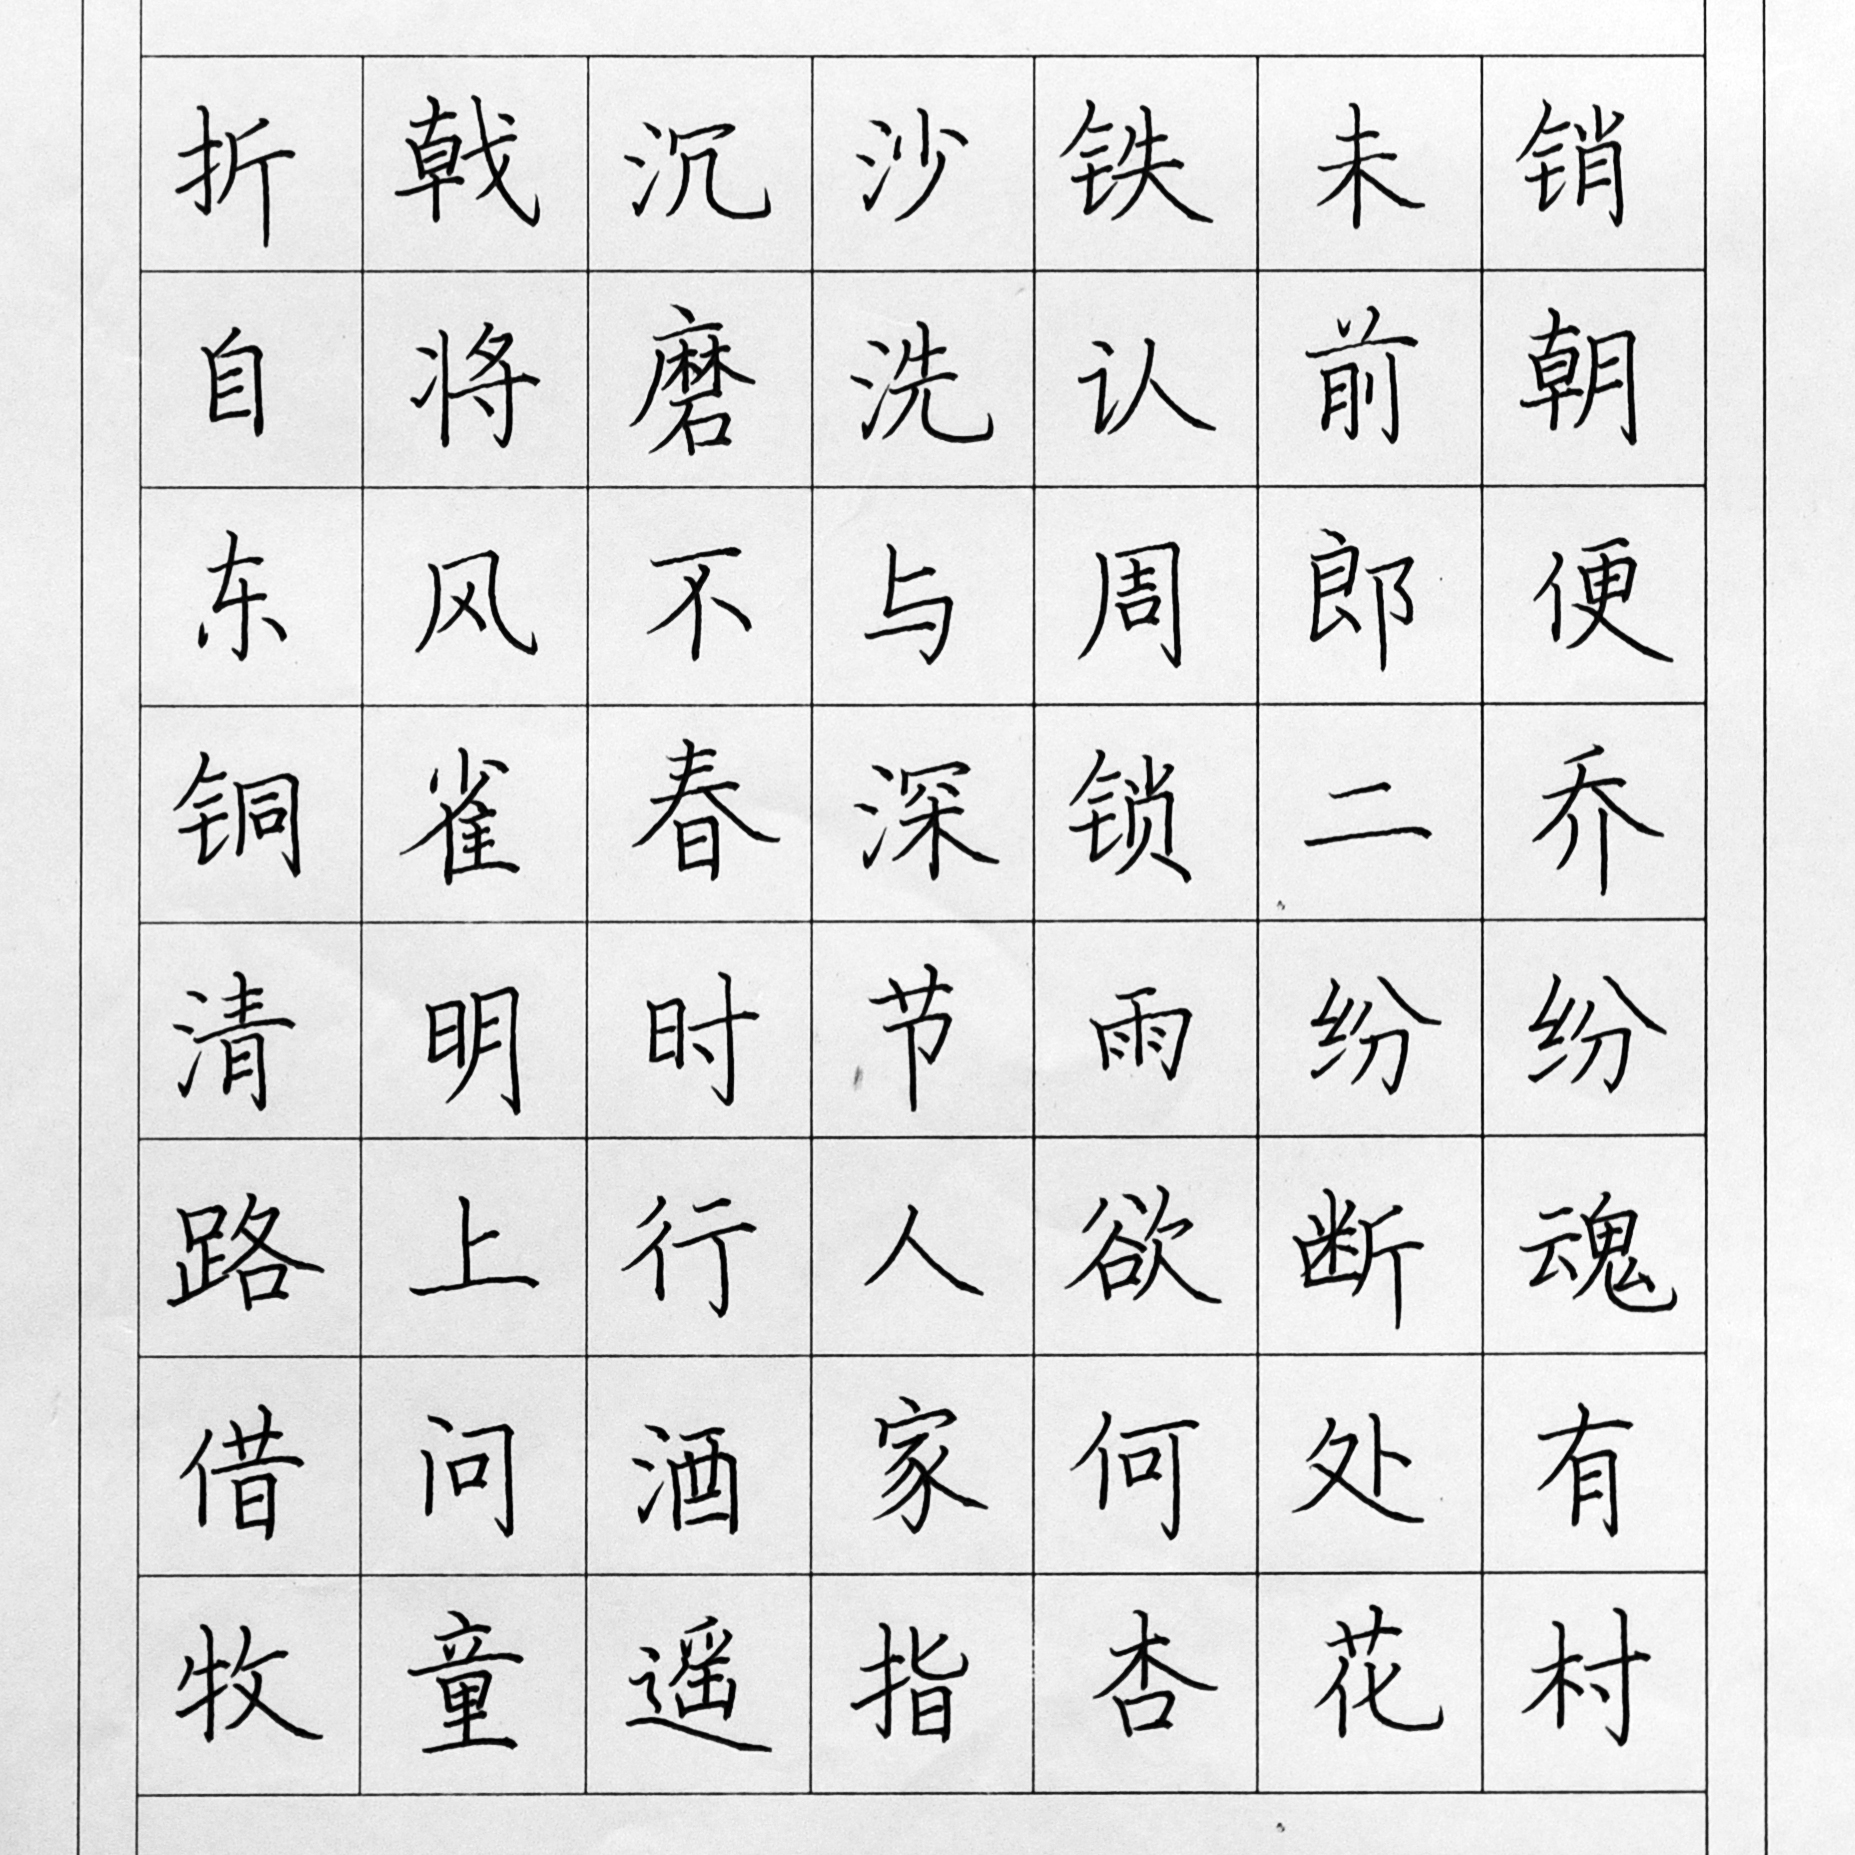 折戟沉沙铁未销
自将磨洗认前朝
东风不与周郎便
铜雀春深锁二乔
清明时节雨纷纷
路上行人欲断魂
借问酒家何处有
牧童遥指杏花村